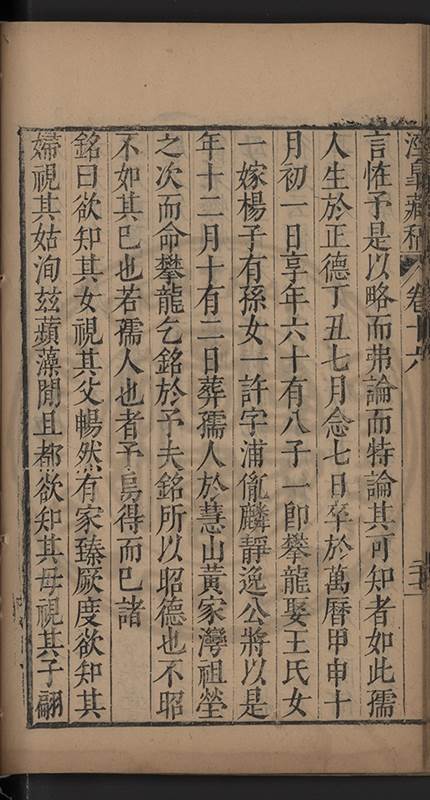 涇皋藏稿 卷十六
言恠予是以略而弗論而特論其可知者如此孺
人生於正德丁丑七月念七日卒於萬曆甲申十
月初一日享年六十有八子一卽攀龍娶王氏女
一嫁楊子有孫女一許字浦胤麟靜逸公將以是
年十二月十有二日葬孺人於慧山黃家灣祖塋
之次而命攀龍乞銘於予夫銘所以昭德也不昭
不如其已也若孺人也者予烏得而已諸
銘曰欲知其女視其父暢然有家臻厥度欲知其
婦視其姑洵玆蘋藻閒且都欲知其母視其子翩